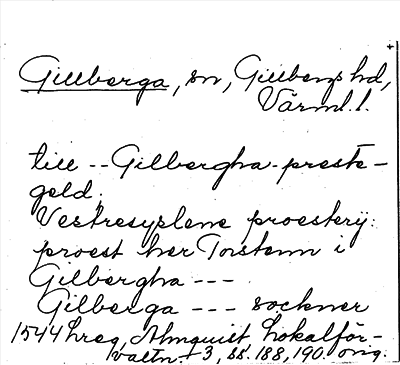 Gillberga, sn, Gillbergs hd,
Värml. l.
till -- Gilbergha-preste-
geld.
Vestresyslene proesterij:
proest her Torstenn i
Gilbergha ---
Gilberga --- sockner
1544 hreg, Almquist Lokalför-
valtn. 3, ss. 188, 190. orig.